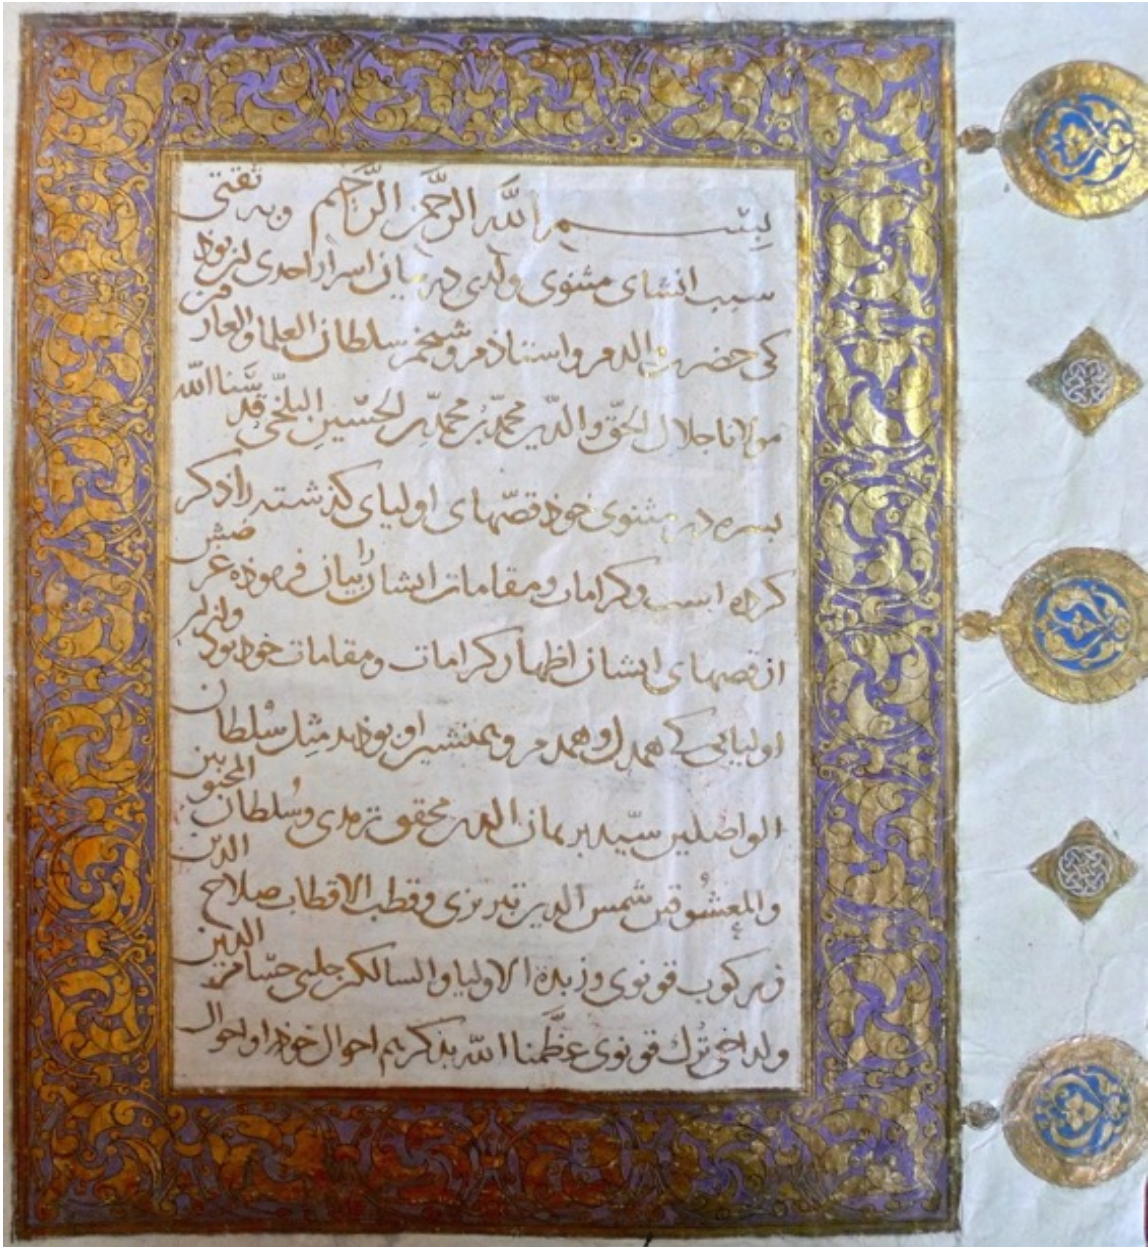 بسم الله الرحمن الرحیم وبه ثقتی
سبب انشای مثنوی ولدی در بیان اسرار احدی آن بود
کی حضرت والدم و استاذم و شیخم سلطان العلما والعارفین
مولانا جلال الحق والدین محمد بن محمد بن الحسین البلخی قدسنا الله
بسره در مثنوی خود قصهای اولیای کذشته را ذکر
کرده است و کرامات و مقامات ایشان را بیان فرموده غرضش
از قصهای ایشان اظهار کرامات و مقامات خود بود و از آن
اولیایی که همدل و همدم و همنشین او بودند مثل سلطان
الواصلین سید برهان الدین محقق ترمدی و سلطان المحبوبین
والمعشوقین شمس الدین تبریزی و قطب الاقطاب صلاح الدین
زرکوب قونوی و زبدة الاولیا والسالکین جلبی حسام الدین
ولد اخی ترک قونوی عظمنا الله بذکرهم احوال خود را و احوال